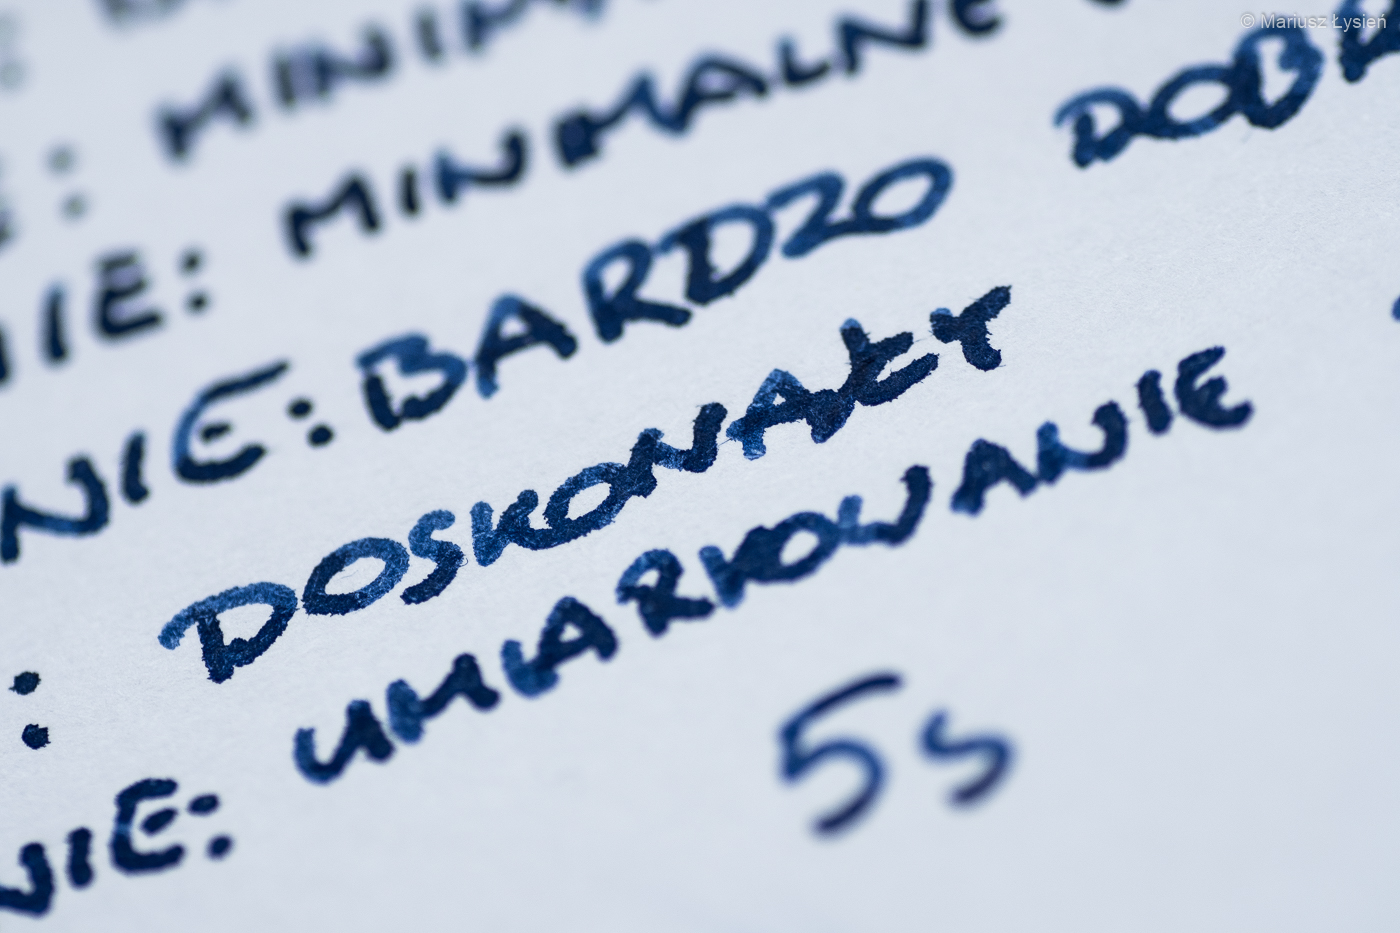 © Mariusz Łysień
: MINIM
NIE: MINIMALNE
NIE: BARDZO DOBR
: DOSKONAŁY
NIE: UMIARKOWANIE
5s